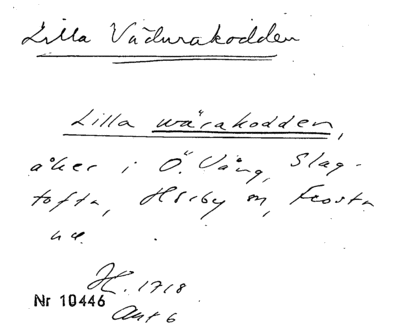 Lilla Vädurakodden
Lilla wärakodden,
åker i Ö. Vång, Slag-
tofta, Hörby sn, Frosta
hd.
H. 1718
Nr 10446
Akt 6